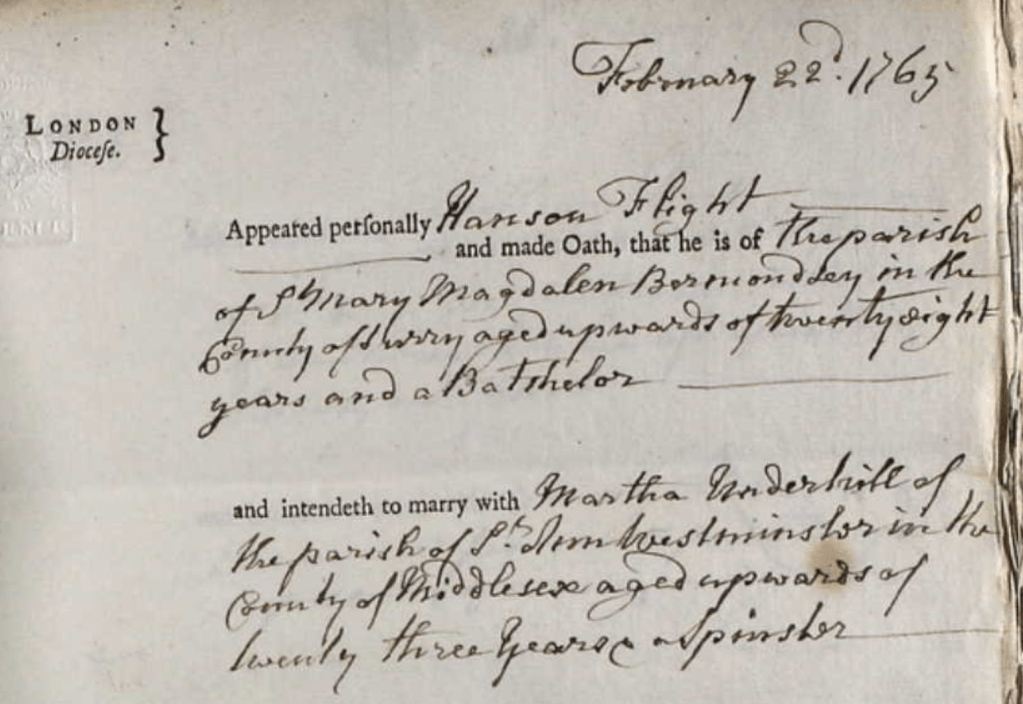 February 22d. 1765
LONDON
Dioceſe.
Appeared perſonally Hanson Flight
and made Oath, that he is of the parish
of St Mary Magdalen Bermondsey in the
County of Surry aged upwards of twenty eight
years and a Batchelor
and intendeth to marry with Martha Underhill of
the parish of St. Ann Westminster in the
County of Middlesex aged upwards of
twenty three Years & a Spinster